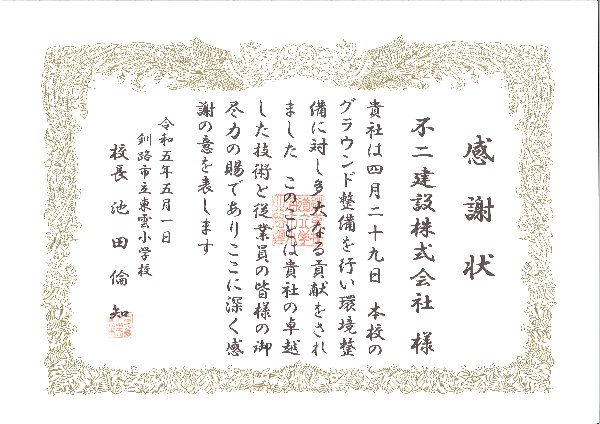 感謝状
不二建設株式会社 様
貴社は四月二十九日 本校の
グラウンド整備を行い環境整
備に対し多大なる貢献をされ
ました このことは貴社の卓越
した技術と従業員の皆様の御
尽力の賜でありここに深く感
謝の意を表します
令和五年五月一日
釧路市立東雲小学校
校長 池田倫知